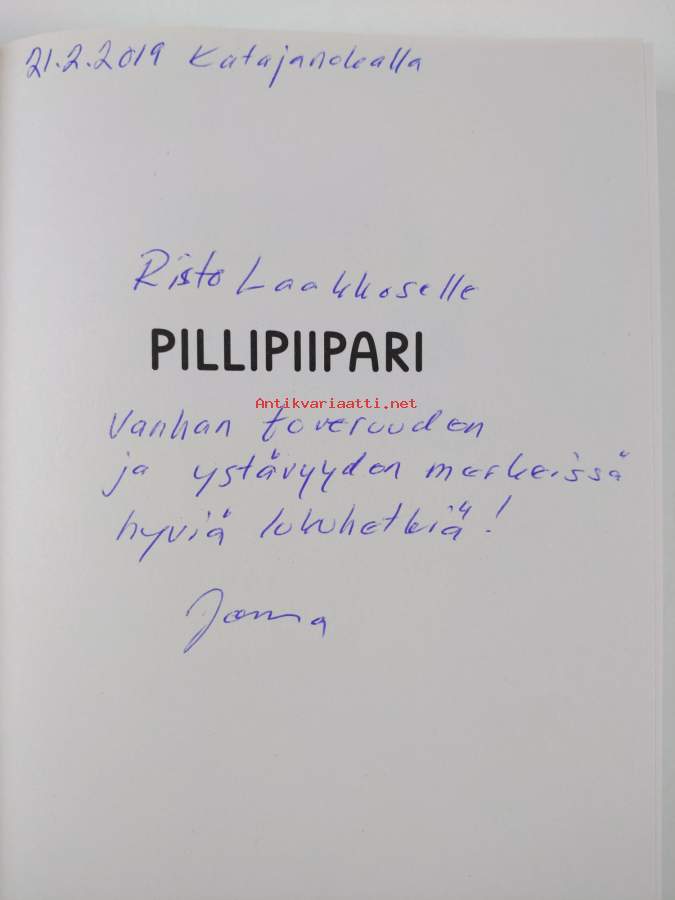 21.2.2019 Katajanokalla
Risto Laakkoselle
PILLIPIIPARI
Antikvariaatti.net
Vanhan toveruuden
ja ystävyyden merkeissä
hyviä lukuhetkiä!